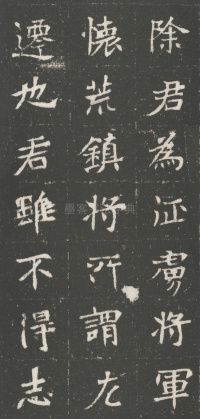 除君為征虜將軍
懷荒鎮將所謂左
遷也君雖不得志